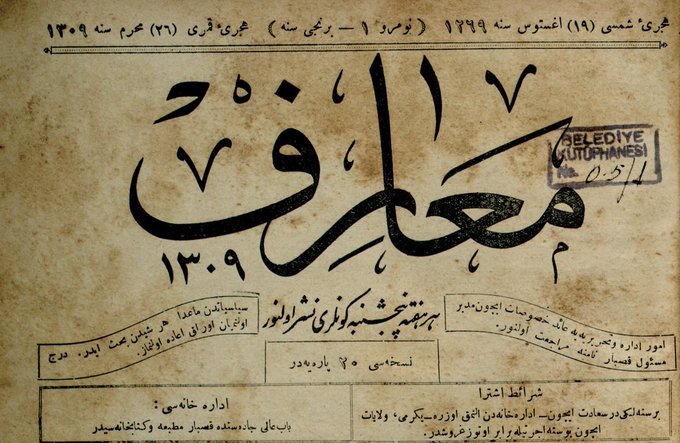 هجرئ شمسی (١٩) اغستوس سنه ١٢٦٩ ( نومرو ١ – برنجی سنه ) هجرئ قمری (٢٦) محرم سنه ١٣٠٩
معارف
١٣٠٩
BELEDİYE
KÜTÜPHANESİ
No. 0.5/1
هر هفته پنجشنبه کونلری نشر اولنور
امور اداره و تحریریه یه عائد خصوصات ایچون مدیر
مسئول قصبار نامنه مراجعت اولنور.
سیاسیاتدن ماعدا هر شیدن بحث ایدر. درج
اولنمیان اوراق اعاده اولنماز.
نسخه سی ٢٠ پاره یه در
شرائط اشترا
بر سنه لکی در سعادت ایچون – اداره خانه دن النمق اوزره – یکرمی، ولایات
ایچون پوسته اجرتیله برابر اوتوز غروشدر.
اداره خانه سی:
باب عالی جاده سنده قصبار مطبعه و کتابخانه سیدر